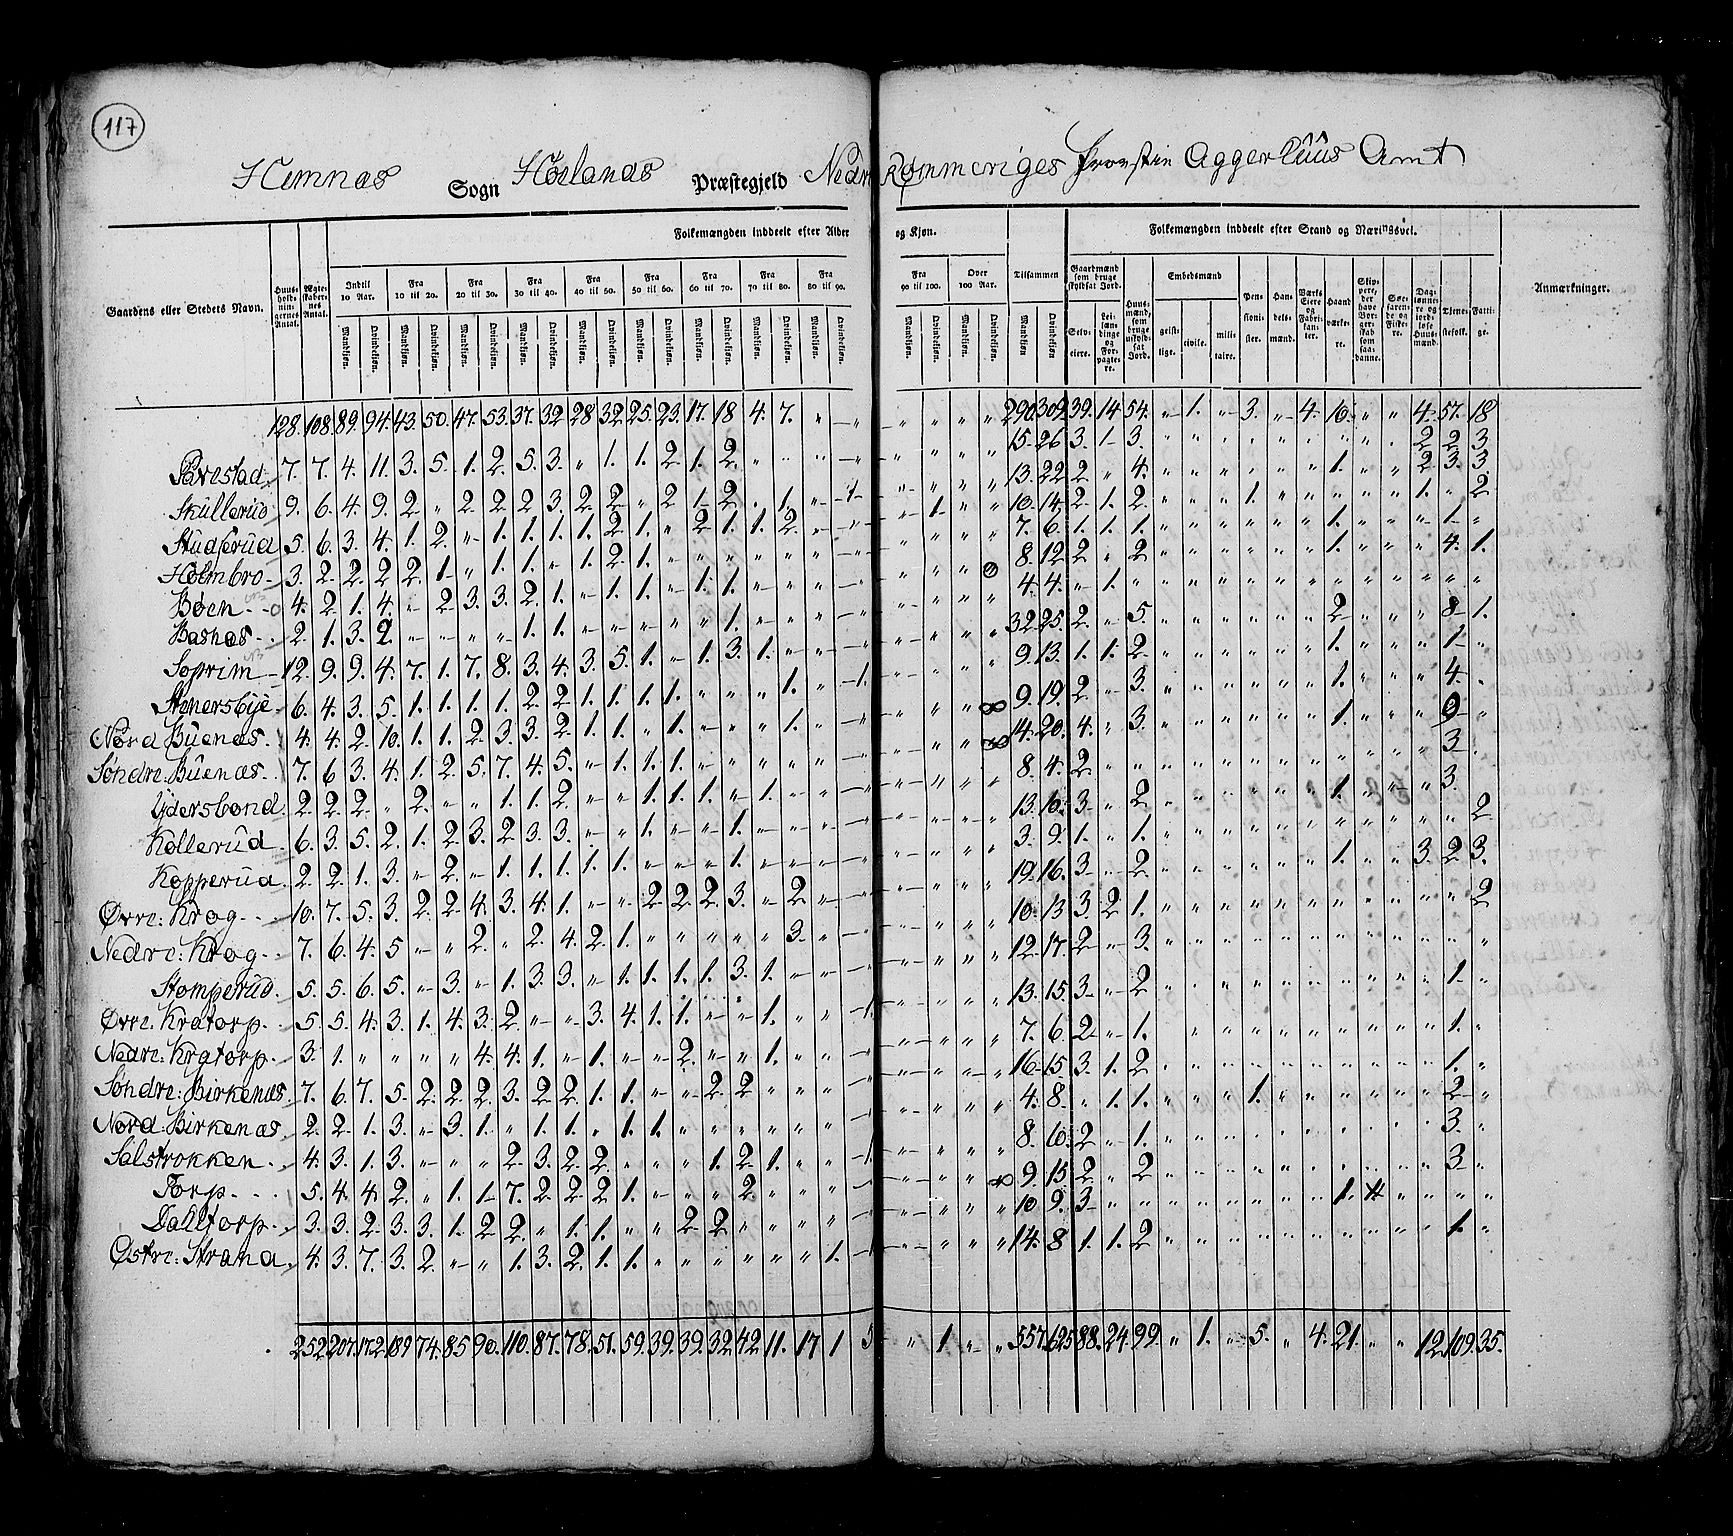 117
Hemnæs Sogn Hølands Præstegjeld Nedre Rommeriges Provstie Aggerhuus Amt
Folkemængden inddeelt efter Alder og Kjøn. Folkemængden inddeelt efter Stand og Næringsvei.
Gaardens eller Stedets Navn. Huusholdningernes Antal. Ægteskabernes Antal. Indtil 10 Aar. Fra 10 til 20. Fra 20 til 30. Fra 30 til 40. Fra 40 til 50. Fra 50 til 60. Fra 60 til 70. Fra 70 til 80. Fra 80 til 90. Fra 90 til 100. Over 100 Aar. Tilsammen Gaardmænd som bruge skyldsat Jord. Huusmænd som bruge uskyldsat Jord. Embedsmænd Pensionister. Handelsmænd. Værks Eiere og Fabrikanter. Haandværkere. Skippere, der have Borgerskab som saadanne. Søefarende og Fiskere. Daglønnere og jordløse Huusmænd. Tjenestefolk. Fattige. Anmærkninger.
Mandkjøn. Qvindekjøn. Mandkjøn. Qvindekjøn. Mandkjøn. Qvindekjøn. Mandkjøn. Qvindekjøn. Mandkjøn. Qvindekjøn. Mandkjøn. Qvindekjøn. Mandkjøn. Qvindekjøn. Mandkjøn. Qvindekjøn. Mandkjøn. Qvindekjøn. Mandkjøn. Qvindekjøn. Mandkjøn. Qvindekjøn. Mandkjøn Qvindekjøn Selveiere. Leilændinge og Forpagtere. geistlige. civile. militaire.
128. 108. 89. 94. 43. 50. 47. 53. 37. 32. 28 32. 25. 23. 17. 18 4. 7. " " " " " " 290. 309. 39. 14 54. " 1. " 3. " 4. 16. " " 4. 57. 18
7. 7. 4. 11. 3. 5. 1. 2. 5. 3. " 1. 1. 2. 1. 2. 15. 26 3. 1 3. 2 2 3
Skullerud 9. 6. 4. 9. 2 " 2. 2. 2. 3. 2. 2 " 2 1. 2. 13. 22 2 " 4. 1. 2 3. 3.
Studserud 5. 6. 3. 4. 1. 2. " 1. 1. 1. 1. 2. 1. " 2. 1. 1. 2. 10. 14. 2. 1. 2. 1. 1. " 2
Holmbro 3. 2. 2. 2. 2. 1. " 1. 1. " 1. 2. 1. 7. 6. 1. 1. 1. 1. 1. "
Bøen 4. 2. 1. 4. " 2. 3. 3. 2. 1. " 1. 1. " 1. 1. 8. 12. 2 " 2 1. 4. 1.
Basnæs 2. 1. 3. 2. 1. 1. 1. 4. 4. " 1.
Soprim 12. 9. 9. 4. 7. 1. 7. 8. 3. 4. 3. 5. 1. " 1. 3. 1. 32. 25. 2. " 5. 2 8 1.
Stenersbye 6. 4. 3. 5. 1. 1. 1. 1. 2. 2. 1. 1. 1. 1. 9. 13. 1. 1. 2 1. 1.
Nord Buenæs. 4. 4. 2. 10. 1. 1. 2. 3. 3. 2. 1. 1. " 1. 9. 19. 2 " 3. 1. 4.
Søndre: Buenæs. 7. 6 3. 4. 1. 2. 5. 7. 4. 5. " 1. 1. 1. 14. 20. 4. " 3. 1. 9
Ydersbond 2. 2. 2. " 2. " " 1. 1. 2. " " 1. 1. 1. " 1. 8. 4. 2. 3
Kollerud. 6. 3. 5. 2. 1. 2. 3. 2. 3. 3. " " 1. " " 1. 13. 10. 3. " 2 1. 3.
Kopperud. 2. 2. 1. 3. " 2. " 1. 1. 1. 1. 1. " " " 1. 3. 9. 1. " 1. 2
Øvre: Krog. 10. 7. 5. 3. 2. 2. 4. 3. 4. 1. " " 2. 2. 2. 3. " 2. 19. 16. 3. " 2. 1. 3. 2 3.
Nedre: Krog. 7. 6. 4. 5 " " 2. " 2. 4. 2. 1. " " " " " 3. 10. 13 3. 2 1. 2
Stomperud. 5. 5. 6. 5. " 3. " 1. 3. 3. " 1. 1. 1. 1. 3. 1. 12. 17. 2 " 3.
Øvre: Kratorp. 5. 5. 4. 3. 1. 4. 3. 2 " " 3. 4. 1. 1. " " 1. 13. 15. 3 " 2 1.
Nedre: Kratorp. 3. 1. " " " " 4. 4. 1. " 1. " " 2. " " 1. 7. 6. 2 " 1. 1.
Søndre: Birkenæs. 7. 6. 7. 5. 2. 2. 2. 3. 2. 2. 1. 1. " " 2. 2. 16. 15. 3. 1. 2 1.
Nord: Birkenæs. 2. 2. 1. 3. " 3. 1. " 1. 1. " 1. 1. 4. 8. " 1. 1. 1. 2
4. 3. 1. 3. " " " 2. 3. 2. 2. " " " 1. 2. 1. 8. 10. 2 " 1. 3.
Torp. 5. 4. 4. 2. " 1. 1. 7. 2. 2. 2. 1. " " " 2. 9. 15. 2 " 2 3
Dahltorp. 3. 3. 2. 3. 3. 1. 2. 2. " 1. 1. " " 2. 2. 10. 9. 3 1.
Østre: Strand 4. 3. 7. 3. 2. " " 1. 3. 2. 1. 1. 1. 14. 8 1. 1. 2 1.
252. 207. 172. 189 74. 85. 90. 110. 87. 78. 51. 59. 39. 39. 32. 42. 11. 17 1 5 " 1 " " 557. 625. 88. 24. 99. " 1. " 5. " 4. 21. " " 12. 109. 35.